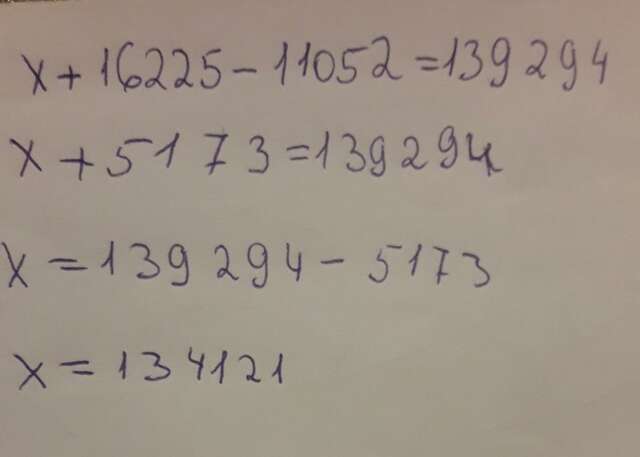 x + 16225 - 11052 = 139294
x + 5173 = 139294
x = 139294 - 5173
x = 134121